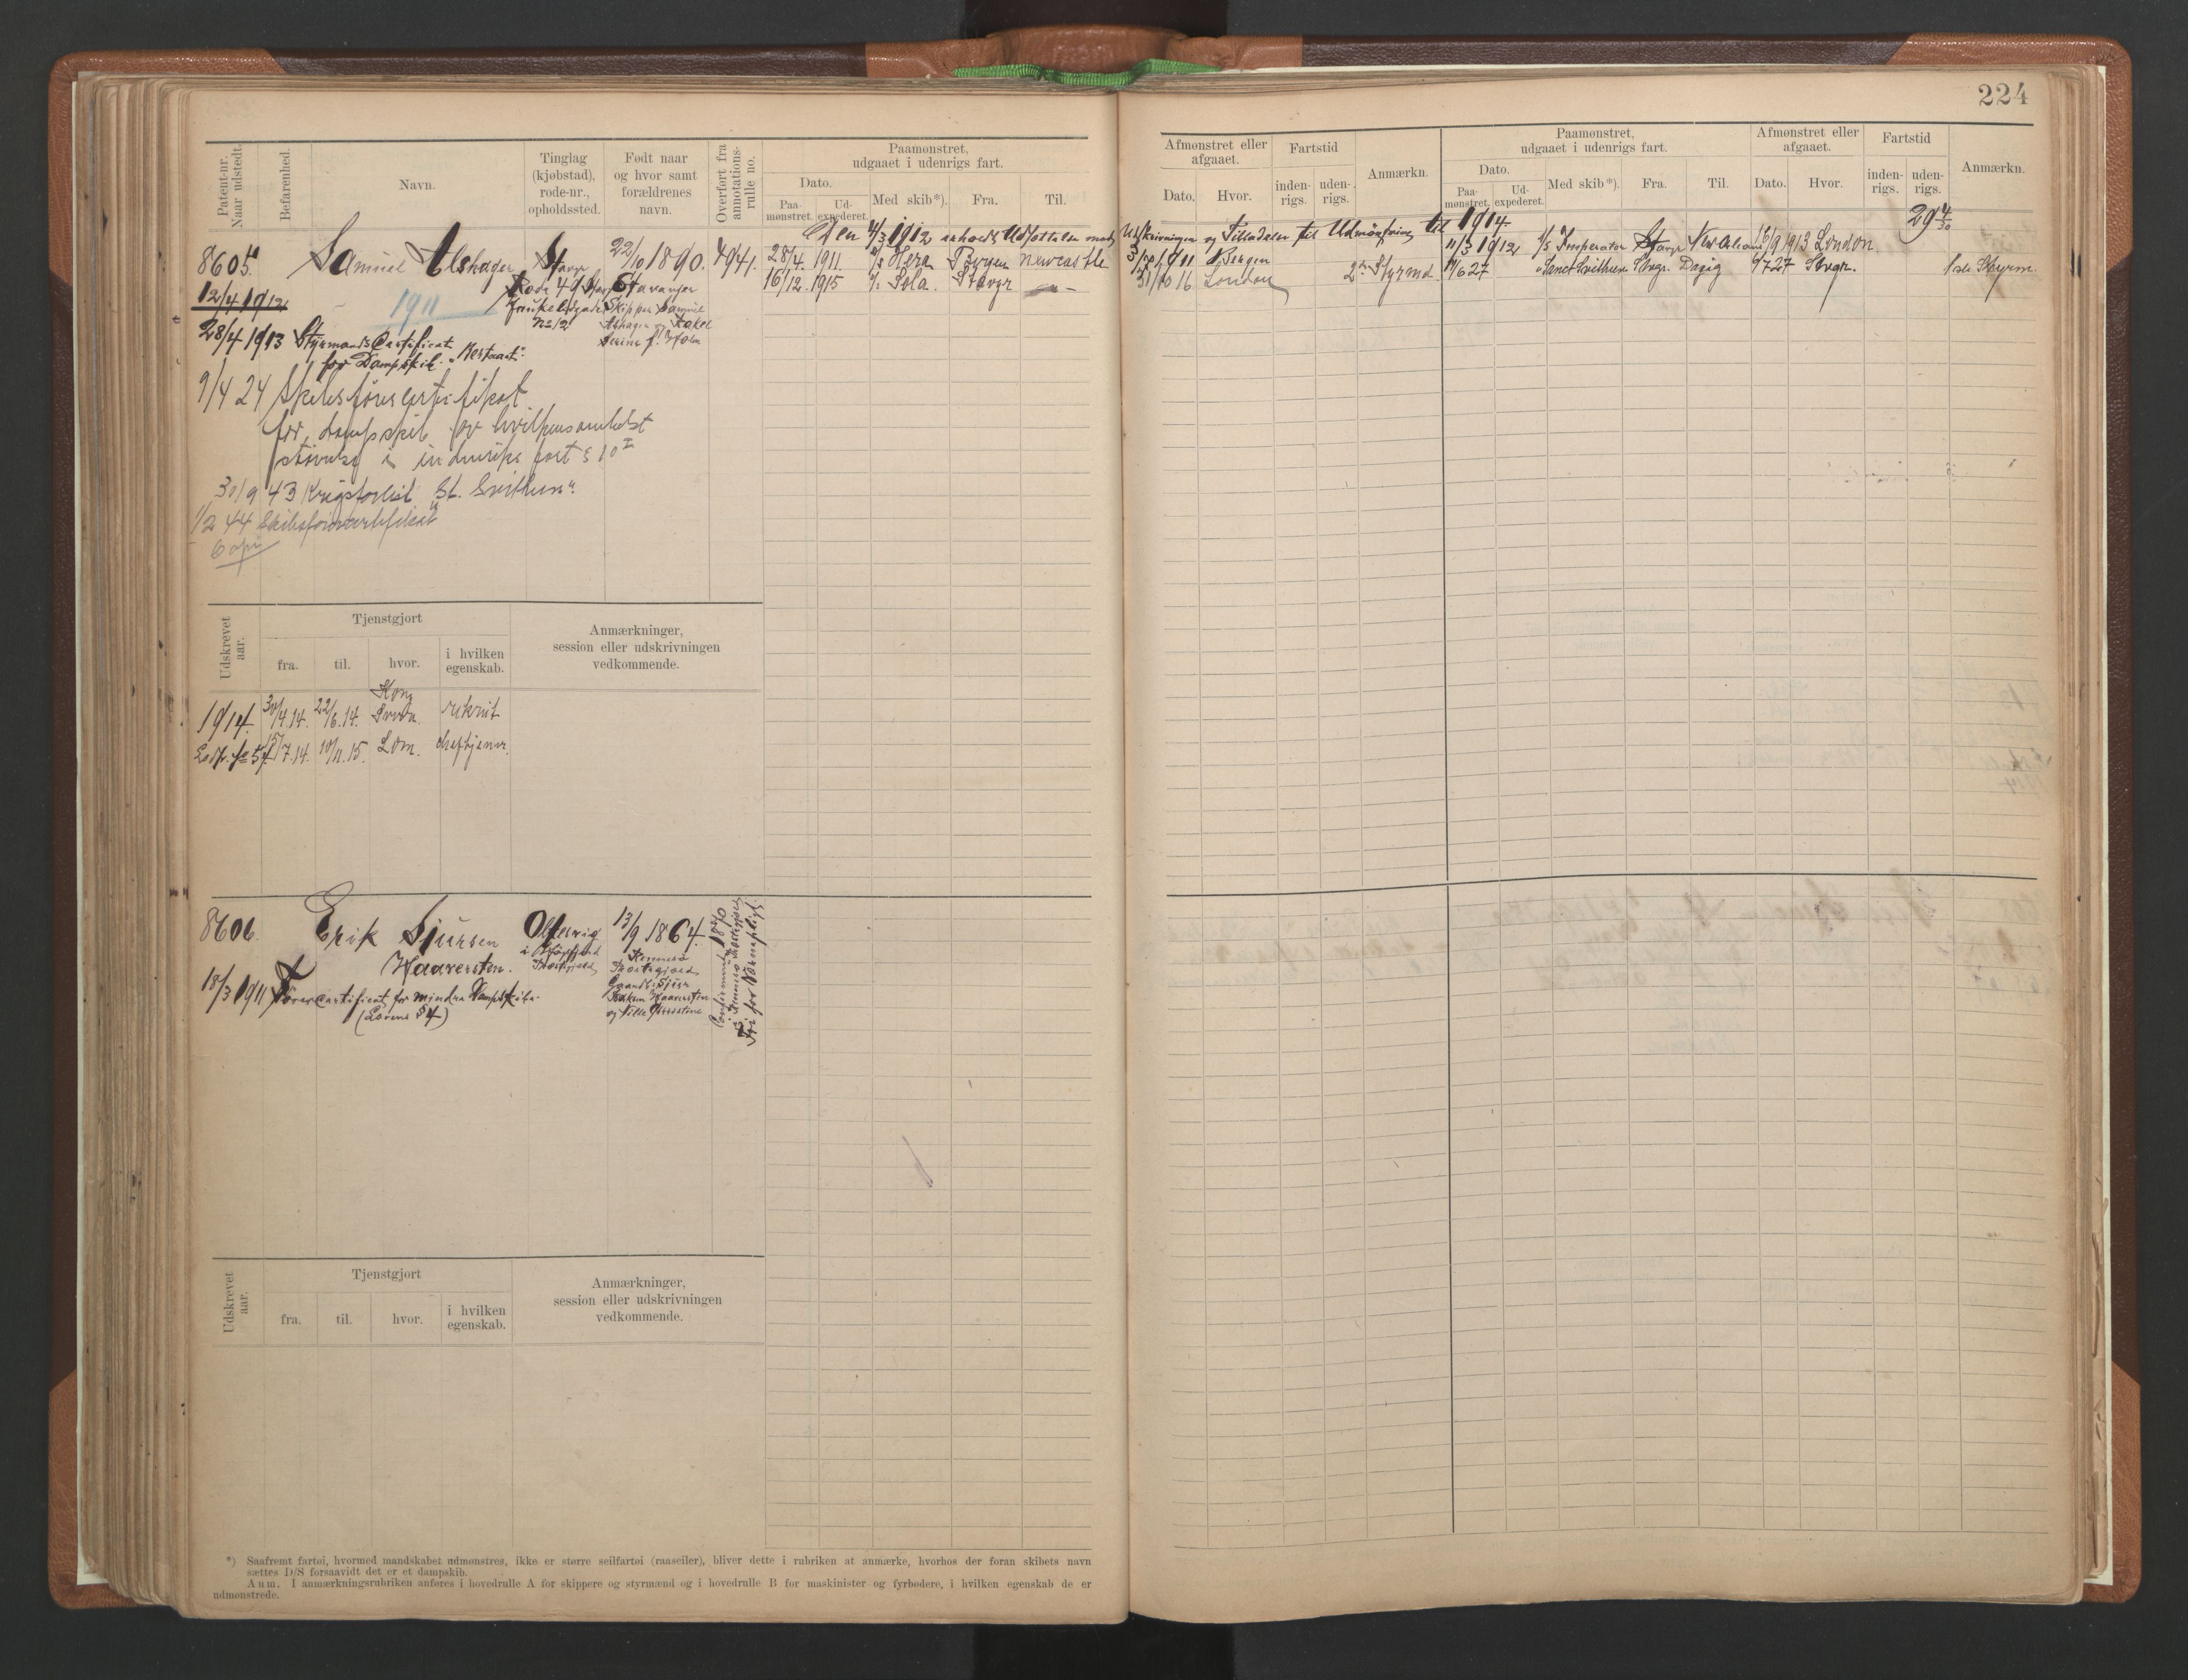 224
Patent-nr.
Naar udstedt.
Befarenhed.
Navn.
Tinglag
(kjøbstad),
rode-nr.,
opholdssted.
Født naar
og hvor samt
forældrenes
navn.
Overført fra
annotations-
rulle no.
Paamønstret,
udgaaet i udenrigs fart.
Dato.
Paa-
mønstret.
Ud-
expederet.
Med skib*).
Fra.
Til.
Afmønstret eller
afgaaet.
Dato.
Hvor.
Fartstid
inden-
rigs.
uden-
rigs.
Anmærkn.
Paamønstret,
udgaaet i udenrigs fart.
Dato.
Paa-
mønstret.
Ud-
expederet.
Med skib*).
Fra.
Til.
Afmønstret eller
afgaaet.
Dato.
Hvor.
Fartstid
inden-
rigs.
uden-
rigs.
Anmærkn.
8605
12/4 1912
Samuel Alshager
1911
Stavgr
Rode 49
No 12
22/10 1890.
Stavanger
Skipper Samuel
Alshager og Rakel
Serine f. Holm
4941.
Den 4/3 1912 erholdt Udsættelse med Udskrivningen og Tilladelse til Udmønstring til 1914.
28/4 1911 Hera Bergen Newcastle
1911 Bergen
11/3 1912 Imperator Stavgr New Orleans 1913 London
29 4/30
16/12 1915 Sola Stavgr
31/10 16 London 2n Styrmd.
11/6 27 Sanct Svithun Stvgr. 9/7 27 Stvgr. 1ste Styrm.
28/4 1913 Styrmands Certificat
for Dampskib
9/4 24 Skibsførercertifikat
for dampskib av hvilkensomhelst
størrelse i indenriks fart § 10 I
30/9 43 Krigsforlist "St. Svithun"
1/2 44 Skibsførercertifikat
Udskrevet
aar.
Tjenstgjort
fra.
til.
hvor.
i hvilken
egenskab.
Anmærkninger,
session eller udskrivningen
vedkommende.
1914. 30/4.14. 22/6.14. rekrut
15/7.14. 10/11.15. Lom.
8606.
18/3 1911
Erik Sjursen
Haaversten.
Førercertificat for mindre Dampskibe.
(Lovens § 4)
13/9 1864.
Fri for Værnepligt
Udskrevet
aar.
Tjenstgjort
fra.
til.
hvor.
i hvilken
egenskab.
Anmærkninger,
session eller udskrivningen
vedkommende.
*) Saafremt fartøi, hvormed mandskabet udmønstres, ikke er større seilfartøi (raaseiler), bliver dette i rubriken at anmærke, hvorhos der foran skibets navn
sættes D/S forsaavidt det er et dampskib.
Anm. I anmærkningsrubriken anføres i hovedrulle A for skippere og styrmænd og i hovedrulle B for maskinister og fyrbødere, i hvilken egenskab de er
udmønstrede.